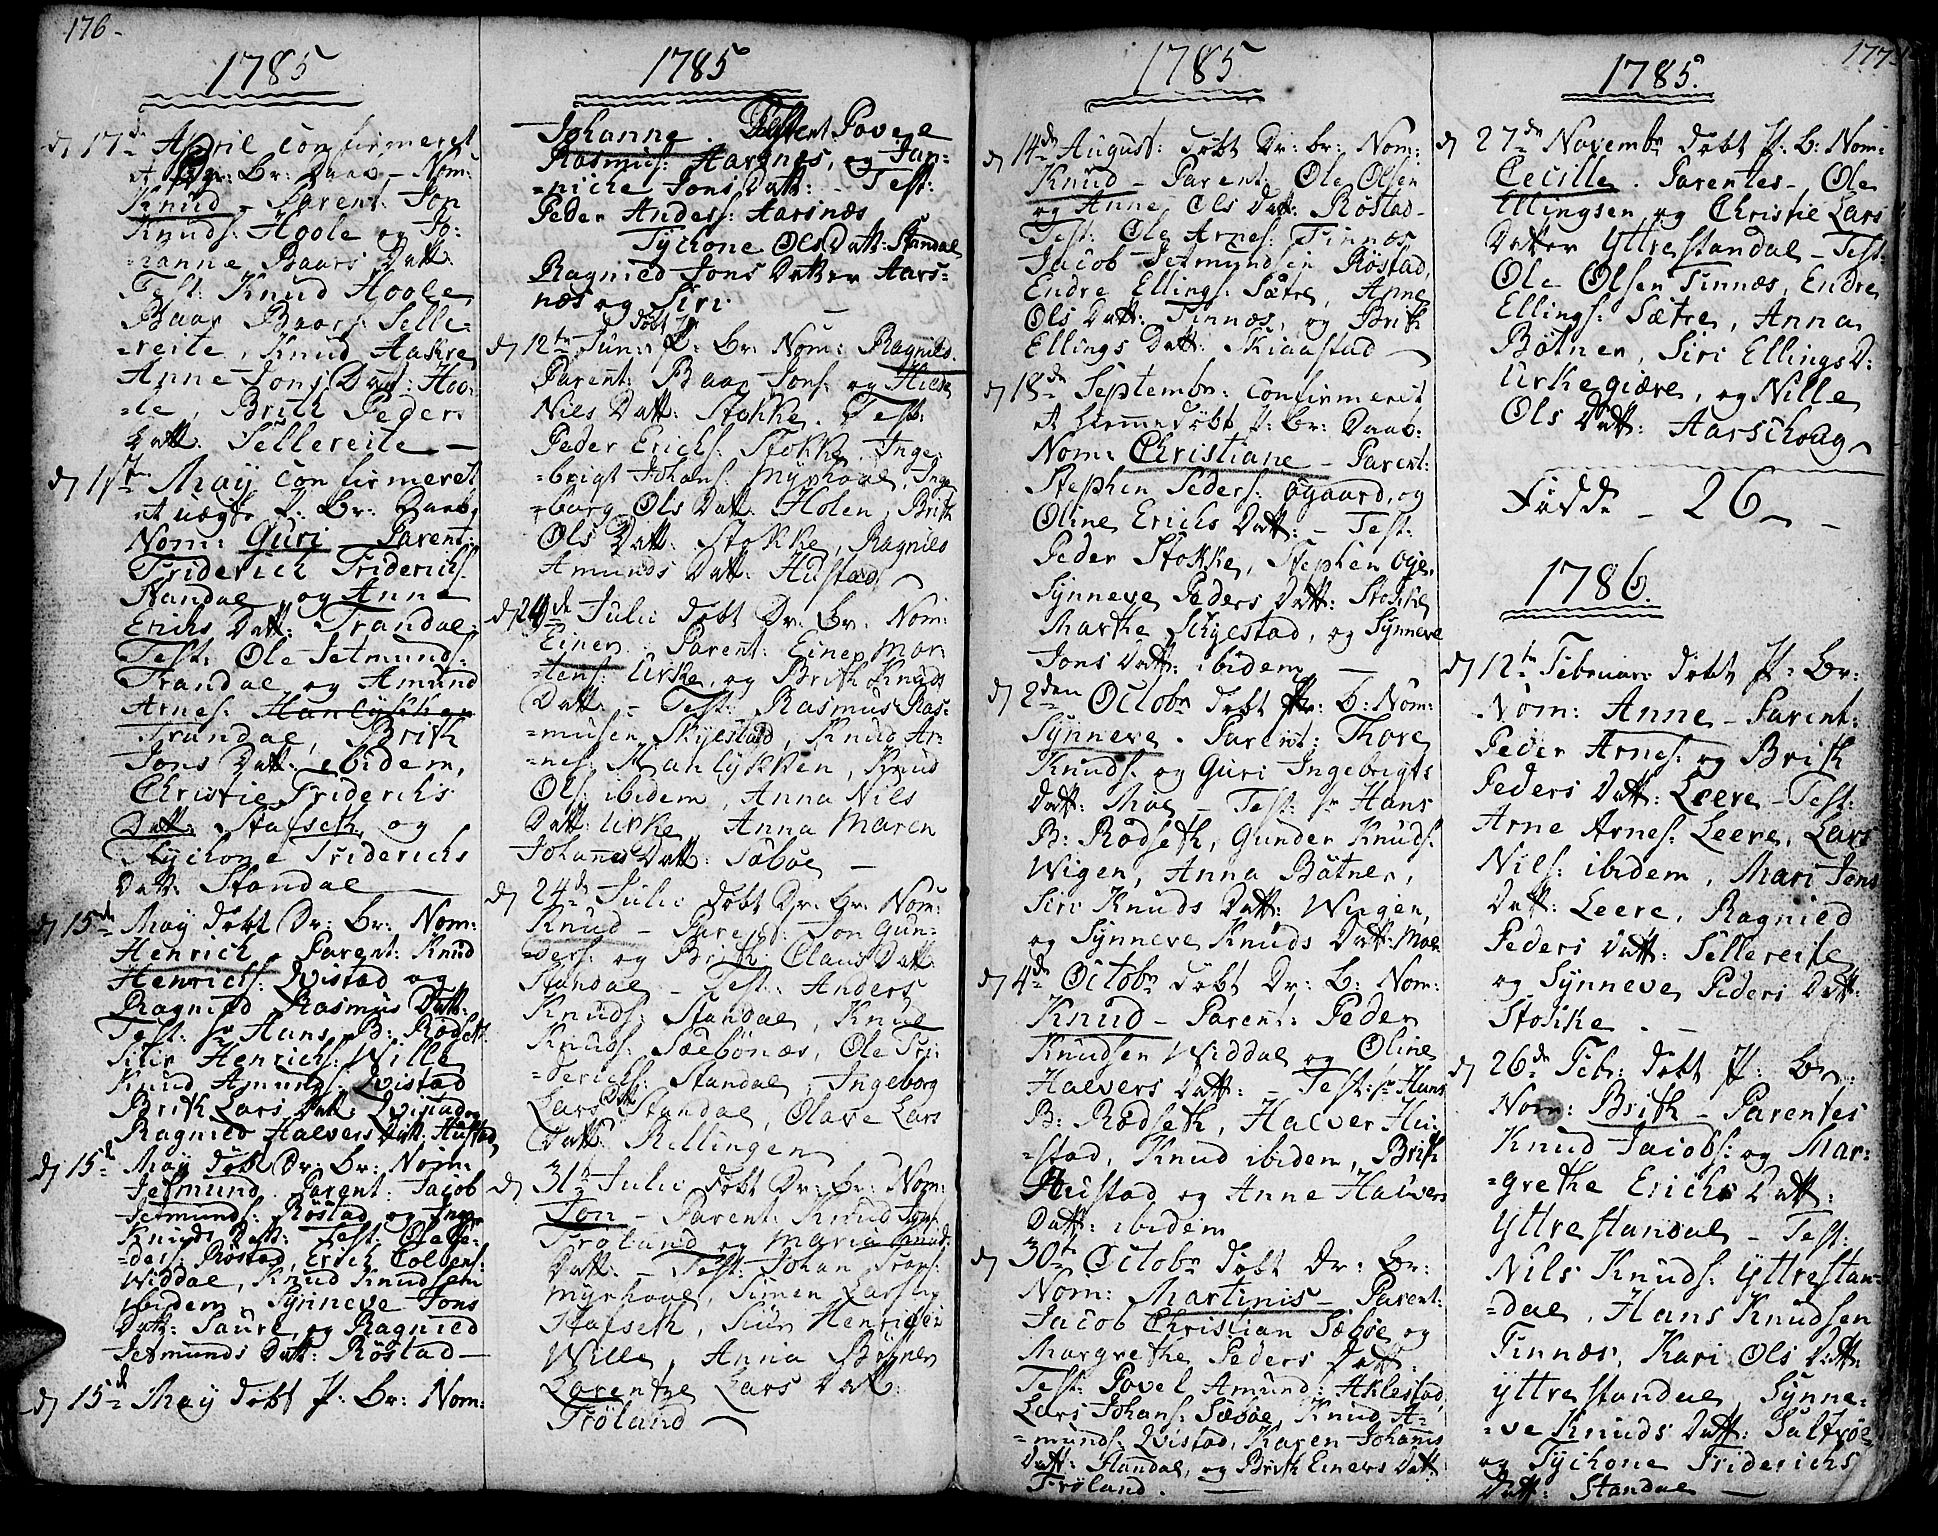 176-
1785
d 17de April confirmeret
et Dr: Br: Daab - Nom:
Knud - Parent: Jon
Knuds: Hoole og Jo:
=hanne Baars Datt:
Test: Knud Hoole,
Baar Baars: Selle=
=reite, Knud Aakre,
Anne Jons Datt: Hoo:
=le, Brith Peders
Datt: Sellereite -
d 1ste May confirmeret
et uægte P: Br: Daab,
Nom: Guri Parent:
Friderich Friderichs:
Standal, og Anne
Erichs Datt: Trandal:
Test: Ole Jetmunds:
Trandal og Amund
Arnes:
Trandal, Brith
Jons Datt: ibidem,
Christie Friderichs
Datt: Stafseth, og
Tychone Friderichs
Datt: Standal
d 15de May døbt Dr: Br: Nom:
Henrich. Parent: Knud
Henrichs: Qvistad og
Ragnied Rasmus Datt:
Test: Sr Hans B: Rødseth
Henrichs: Wille
Knud Amunds: Qvistad
Brith Lars Datt: Qvistad og
Ragnied Halvers Datt: Hustad,
d 15de May døbt Dr: Br: Nom:
Jetmund. Parent: Jacob
Jetmunds: Røstad og Inger
Knuds Datt: Test: Ole Pe=
=ders: Røstad, Erich
Widdal, Knud Knudsen
ibidem, Synneve Jons
Datt: Saure, og Ragnied
Jetmunds Datt: Røstad -
d 15de May døbt P: Br: Nom:
1785
Johanne. Parent: Povel
Rasmus: Aarsnes, og Jan=
=niche Jons Datt: - Test:
Peder Anders: Aarsnæs
Tychone Ols Datt: Standal
Ragnied Jons Datter Aars=
næs og Siri -
d 12te Juni døbt P: Br: Nom: Ragnild.
Parent: Baar Jons: og
Nils Datt: Stokke. Test:
Peder Erichs: Stokke, Inge=
=brigt Johans: Myrhoel, Inge
=borg Ols Datt: Holen, Brith
Ols Datt: Stokke, Ragnild
Amunds Datt: Hustad
d 24de Julii døbt Dr: Br: Nom:
Einer. Parent: Einer Mor=
=tens: Urke, og Brith Knuds
Datt: - Test: Rasmus Ras=
=musen Skyestad, Knud Ar=
=nes: Manlykken, Knud
Ols: ibidem, Anna Nils
Datt: Urke, Anna Maren
Johannes Datt: Sæbøe -
d 24de Julii døbt Dr: Br: Nom:
Knud - Parent: Jon Gun=
=ders: og Brith Claus Datt:
Standal - Test: Anders
Knuds: Standal, Knud
Knuds: Sæbønæs, Ole Fri=
=derichs: Standal, Ingeborg
Lars Datt: Standal, Olave Lars
Datt: Rellingen
d 31te Julii døbt Dr: Br: Nom:
Jon - Parent: Knud Jons:
Frøland og Maria Knuds:
Datt: - Test: Johan
Myrhoel, Simen Larsen
Stafseth, Henrichsen
Wille, Anna Bøtner
Lorentze Lars Datt:
Frøland
1785
d 14de August: døbt Dr: Br: Nom:
Knud - Parent: Ole Olsen
og Anne Ols Datt: Røstad -
Test: Ole Arnes: Finnæs
Jacob Jetmundsen Røstad,
Endre Ellings: Sætre, Anne
Ols Datt: Finnæs, og Brith
Ellings Datt: Skiaastad
d 18de Septembr: confirmeret
et hiemmedøbt P: Br: Daab:
Nom: Christiane - Parent:
Stephen Peders: Øgaard, og
Oline Erichs Datt: - Test:
Peder Stokke, Stephen Øye,
Synneve Peders Datt: Stokke
Marthe Skyestad, og Synneve
Jons Datt: ibidem -
d 2den Octobr døbt P: B: Nom:
Synneve. Parent: Thore
Knuds: og Guri Ingebrigts
Datt: Moe - Test: Sr Hans
B: Rødseth, Gunder Knuds:
Wigen, Anna Bøtner,
Siri Knuds Datt: Wiigen,
og Synneve Knuds Datt: Moe
d 4de Octobr døbt Dr: B: Nom:
Knud - Parent: Peder
Knudsen Widdal og Oline
Halvers Datt: - Test: Sr Hans
B: Rødseth, Halver Hu=
=stad, Knud ibidem, Brith
Hustad og Anne Halvers
Datt: ibidem
d 30te Octobr døbt Dr: Br:
Nom: Martinis - Parent:
Jacob Christian Sæbøe og
Margrethe Peders Datt:
Test: Povel Amund: Aklestad,
Lars Johans: Sæbøe, Knud A=
=munds: Qvistad, Karen Johanns
Datt: Standal, og Brith Einers Datt:
Frøland. -
177
1785.
d 27de Novembr døbt P: B: Nom:
Cecille. Parentes - Ole
Ellingsen og Christie Lars
Datter Yttrestandal - Test:
Ole Olsen Finnæs, Endre
Ellings: Sætre, Anna
Bøtner, Siri Ellings D:
Urkegiære, og Nille
Ols Datt: Aarschoug
Fødde - 26 -
1786.
d 12te Februari døbt P: Br:
Nom: Anne - Parent:
Peder Arnes: og Brith
Peders Datt: Leere - Test:
Arne Arnes: Leere, Lars
Nils: ibidem, Mari Jens
Datt: Leere, Ragnied
Peders Datt: Sellereite
og Synneve Peders Datt:
Stokke. -
d 26de Febr: døbt P: Br:
Nom: Brith - Parentes
Knud Jacobs: og Mar=
=grethe Erichs Datt:
Yttrestandal - Test:
Nils Knuds: Yttrestan=
=dal, Hans Knudsen
Finnæs, Kari Ols Datt:
Yttrestandal, Synne=
=ve Knuds Datt:
og Tychone Friderichs
Datt: Standal -